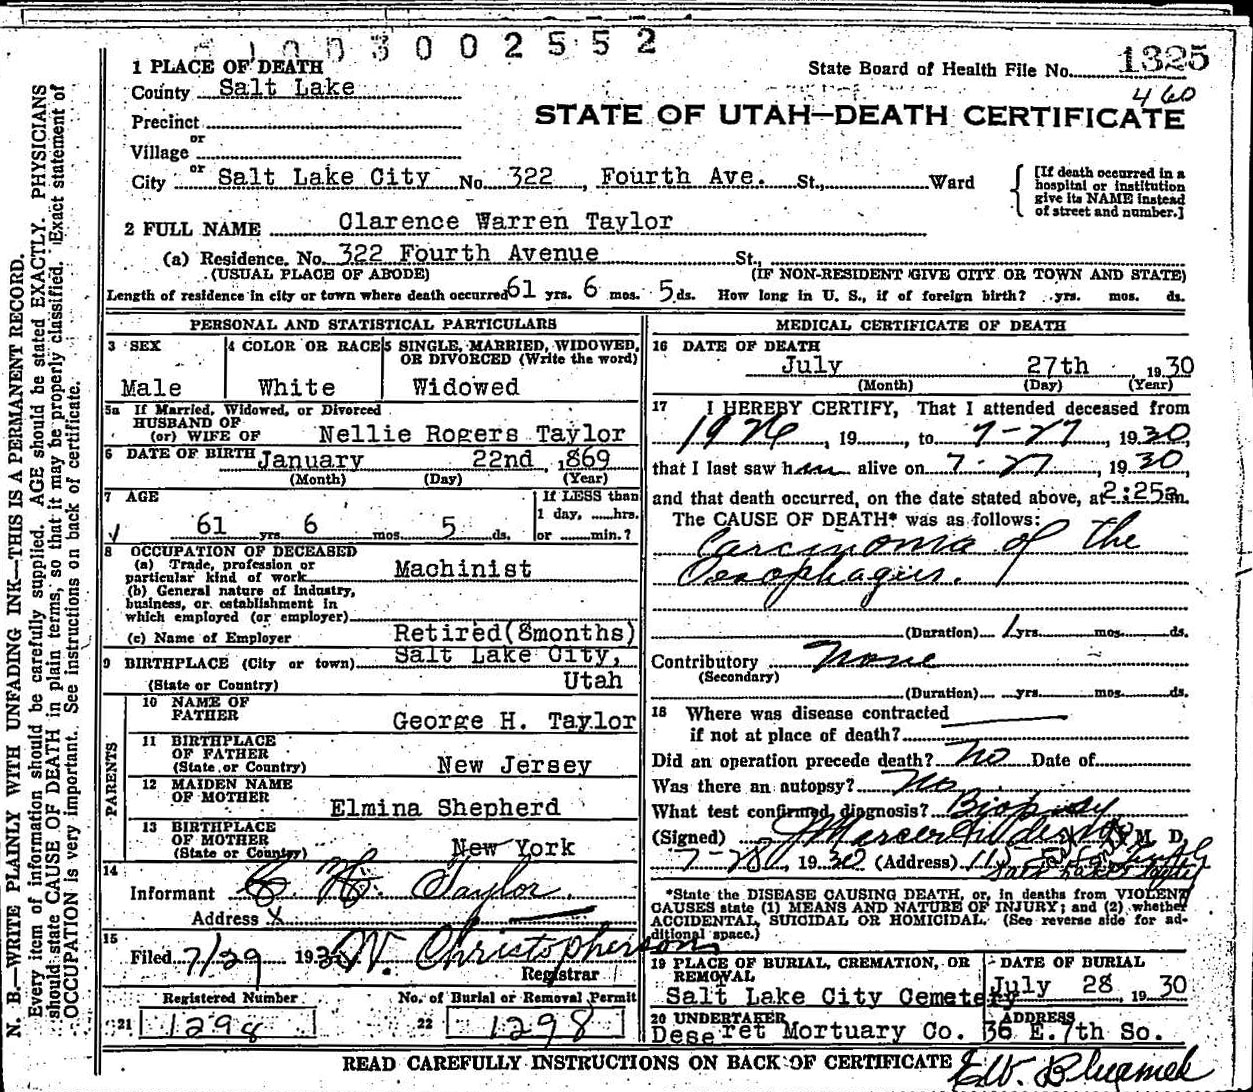 3002552
1325
State Board of Health File No.
460
1 PLACE OF DEATH
County Salt Lake
STATE OF UTAH—DEATH CERTIFICATE
Precinct
or
Village
or
City Salt Lake City No. 322, Fourth Ave. St., Ward
[If death occurred in a hospital or institution give its NAME instead of street and number.]
2 FULL NAME Clarence Warren Taylor
(a) Residence. No. 322 Fourth Avenue St.,
(USUAL PLACE OF ABODE) (IF NON-RESIDENT GIVE CITY OR TOWN AND STATE)
Length of residence in city or town where death occurred 61 yrs. 6 mos. 5 ds. How long in U. S., if of foreign birth? yrs. mos. ds.
PERSONAL AND STATISTICAL PARTICULARS
3 SEX 4 COLOR OR RACE 5 SINGLE, MARRIED, WIDOWED, OR DIVORCED (Write the word)
Male White Widowed
5a If Married, Widowed, or Divorced
HUSBAND OF
(or) WIFE OF Nellie Rogers Taylor
6 DATE OF BIRTH January 22nd, 1869
(Month) (Day) (Year)
7 AGE If LESS than
1 day, hrs.
61 yrs. 6 mos. 5 ds. or min.?
8 OCCUPATION OF DECEASED
(a) Trade, profession or
particular kind of work Machinist
(b) General nature of industry,
business, or establishment in
which employed (or employer)
(c) Name of Employer Retired(8months)
9 BIRTHPLACE (City or town) Salt Lake City,
(State or Country) Utah
PARENTS
10 NAME OF
FATHER George H. Taylor
11 BIRTHPLACE
OF FATHER
(State or Country) New Jersey
12 MAIDEN NAME
OF MOTHER Elmina Shepherd
13 BIRTHPLACE
OF MOTHER
(State or Country) New York
14
Informant Taylor
Address X
15
Filed 7/29 193 W. Christopherson
Registrar
Registered Number No. of Burial or Removal Permit
21 1298 22 1298
MEDICAL CERTIFICATE OF DEATH
16 DATE OF DEATH
July 27th, 1930
(Month) (Day) (Year)
17 I HEREBY CERTIFY, That I attended deceased from
1926, 19, to 7-27, 1930,
that I last saw him alive on 7-27, 1930,
and that death occurred, on the date stated above, at 2:25a m.
The CAUSE OF DEATH* was as follows:
Carcinoma of the
Oesophagus.
(Duration) 1 yrs. mos. ds.
Contributory None
(Secondary)
(Duration) yrs. mos. ds.
18 Where was disease contracted
if not at place of death?
Did an operation precede death? No Date of
Was there an autopsy? No
What test confirmed diagnosis? Biopsy
(Signed) M. D.
7-28, 1930 (Address)
*State the DISEASE CAUSING DEATH, or, in deaths from VIOLENT
CAUSES state (1) MEANS AND NATURE OF INJURY; and (2) whether
ACCIDENTAL, SUICIDAL OR HOMICIDAL. (See reverse side for ad-
ditional space.)
19 PLACE OF BURIAL, CREMATION, OR REMOVAL DATE OF BURIAL
Salt Lake City Cemetery July 28, 1930
20 UNDERTAKER ADDRESS
Deseret Mortuary Co. 36 E. 7th So.
READ CAREFULLY INSTRUCTIONS ON BACK OF CERTIFICATE
N. B.—WRITE PLAINLY WITH UNFADING INK—THIS IS A PERMANENT RECORD.
Every item of information should be carefully supplied. AGE should be stated EXACTLY. PHYSICIANS
should state CAUSE OF DEATH in plain terms, so that it may be properly classified. Exact statement of
OCCUPATION is very important. See instructions on back of certificate.